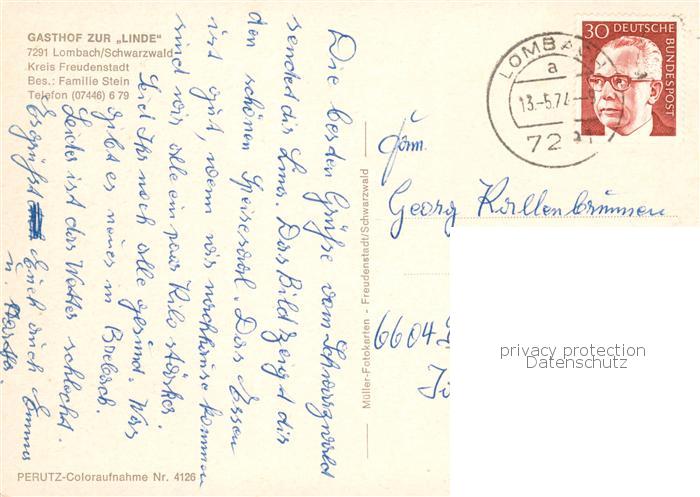 GASTHOF ZUR „LINDE“
7291 Lombach/Schwarzwald
Kreis Freudenstadt
Bes.: Familie Stein
Telefon (07446) 6 79
Die besten Grüße vom Schwarzwald
sendet dir Emma. Das Bild zeigt dir
den schönen Speisesaal. Das Essen
ist gut, wenn wir nachhause kommen
sind wir alle ein paar Kilo stärker.
Seid Ihr noch alle gesund. Was
gibt es neues in
Leider ist das Wetter schlecht.
Es grüßt Euch auch Emma
u. Martha.
PERUTZ-Coloraufnahme Nr. 4126
Müller-Fotokarten - Freudenstadt/Schwarzwald
30 DEUTSCHE
BUNDESPOST
LOMBACH
a
13.-5.74
72
Fam.
Georg Kallenbrunnen
6604
privacy protection
Datenschutz